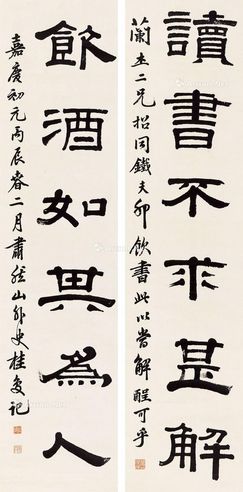 讀書不求甚解
蘭圭二兄招同鐵夫卯飲書此以當解酲可乎
飲酒如其為人
嘉慶初元丙辰春二月肅然山外史桂复記